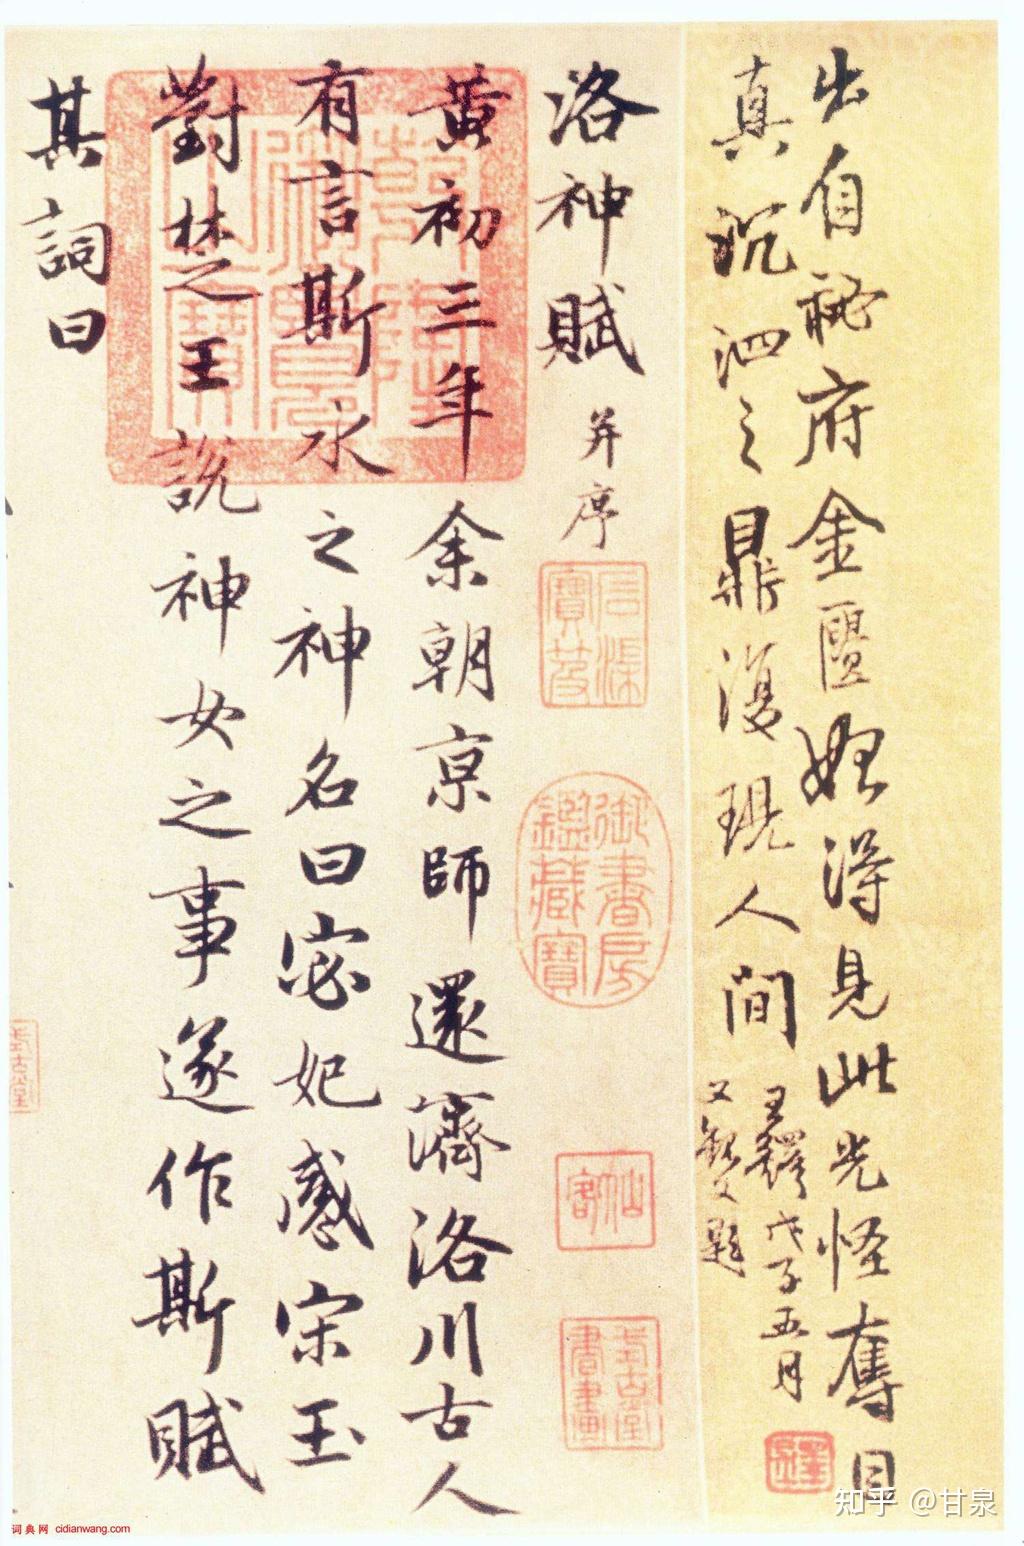 出自祕府金匱始得見此光怪奪目
真沉泗之鼎復現人間
王鐸戊子五月
又觀又題
洛神賦
并序
黃初三年余朝京師還濟洛川古人
有言斯水之神名曰宓妃感宋玉
對楚之王說神女之事遂作斯賦
其詞曰
乾隆御覽之寶
御書房鑑藏寶
知乎 @甘泉
词典网 cidianwang.com